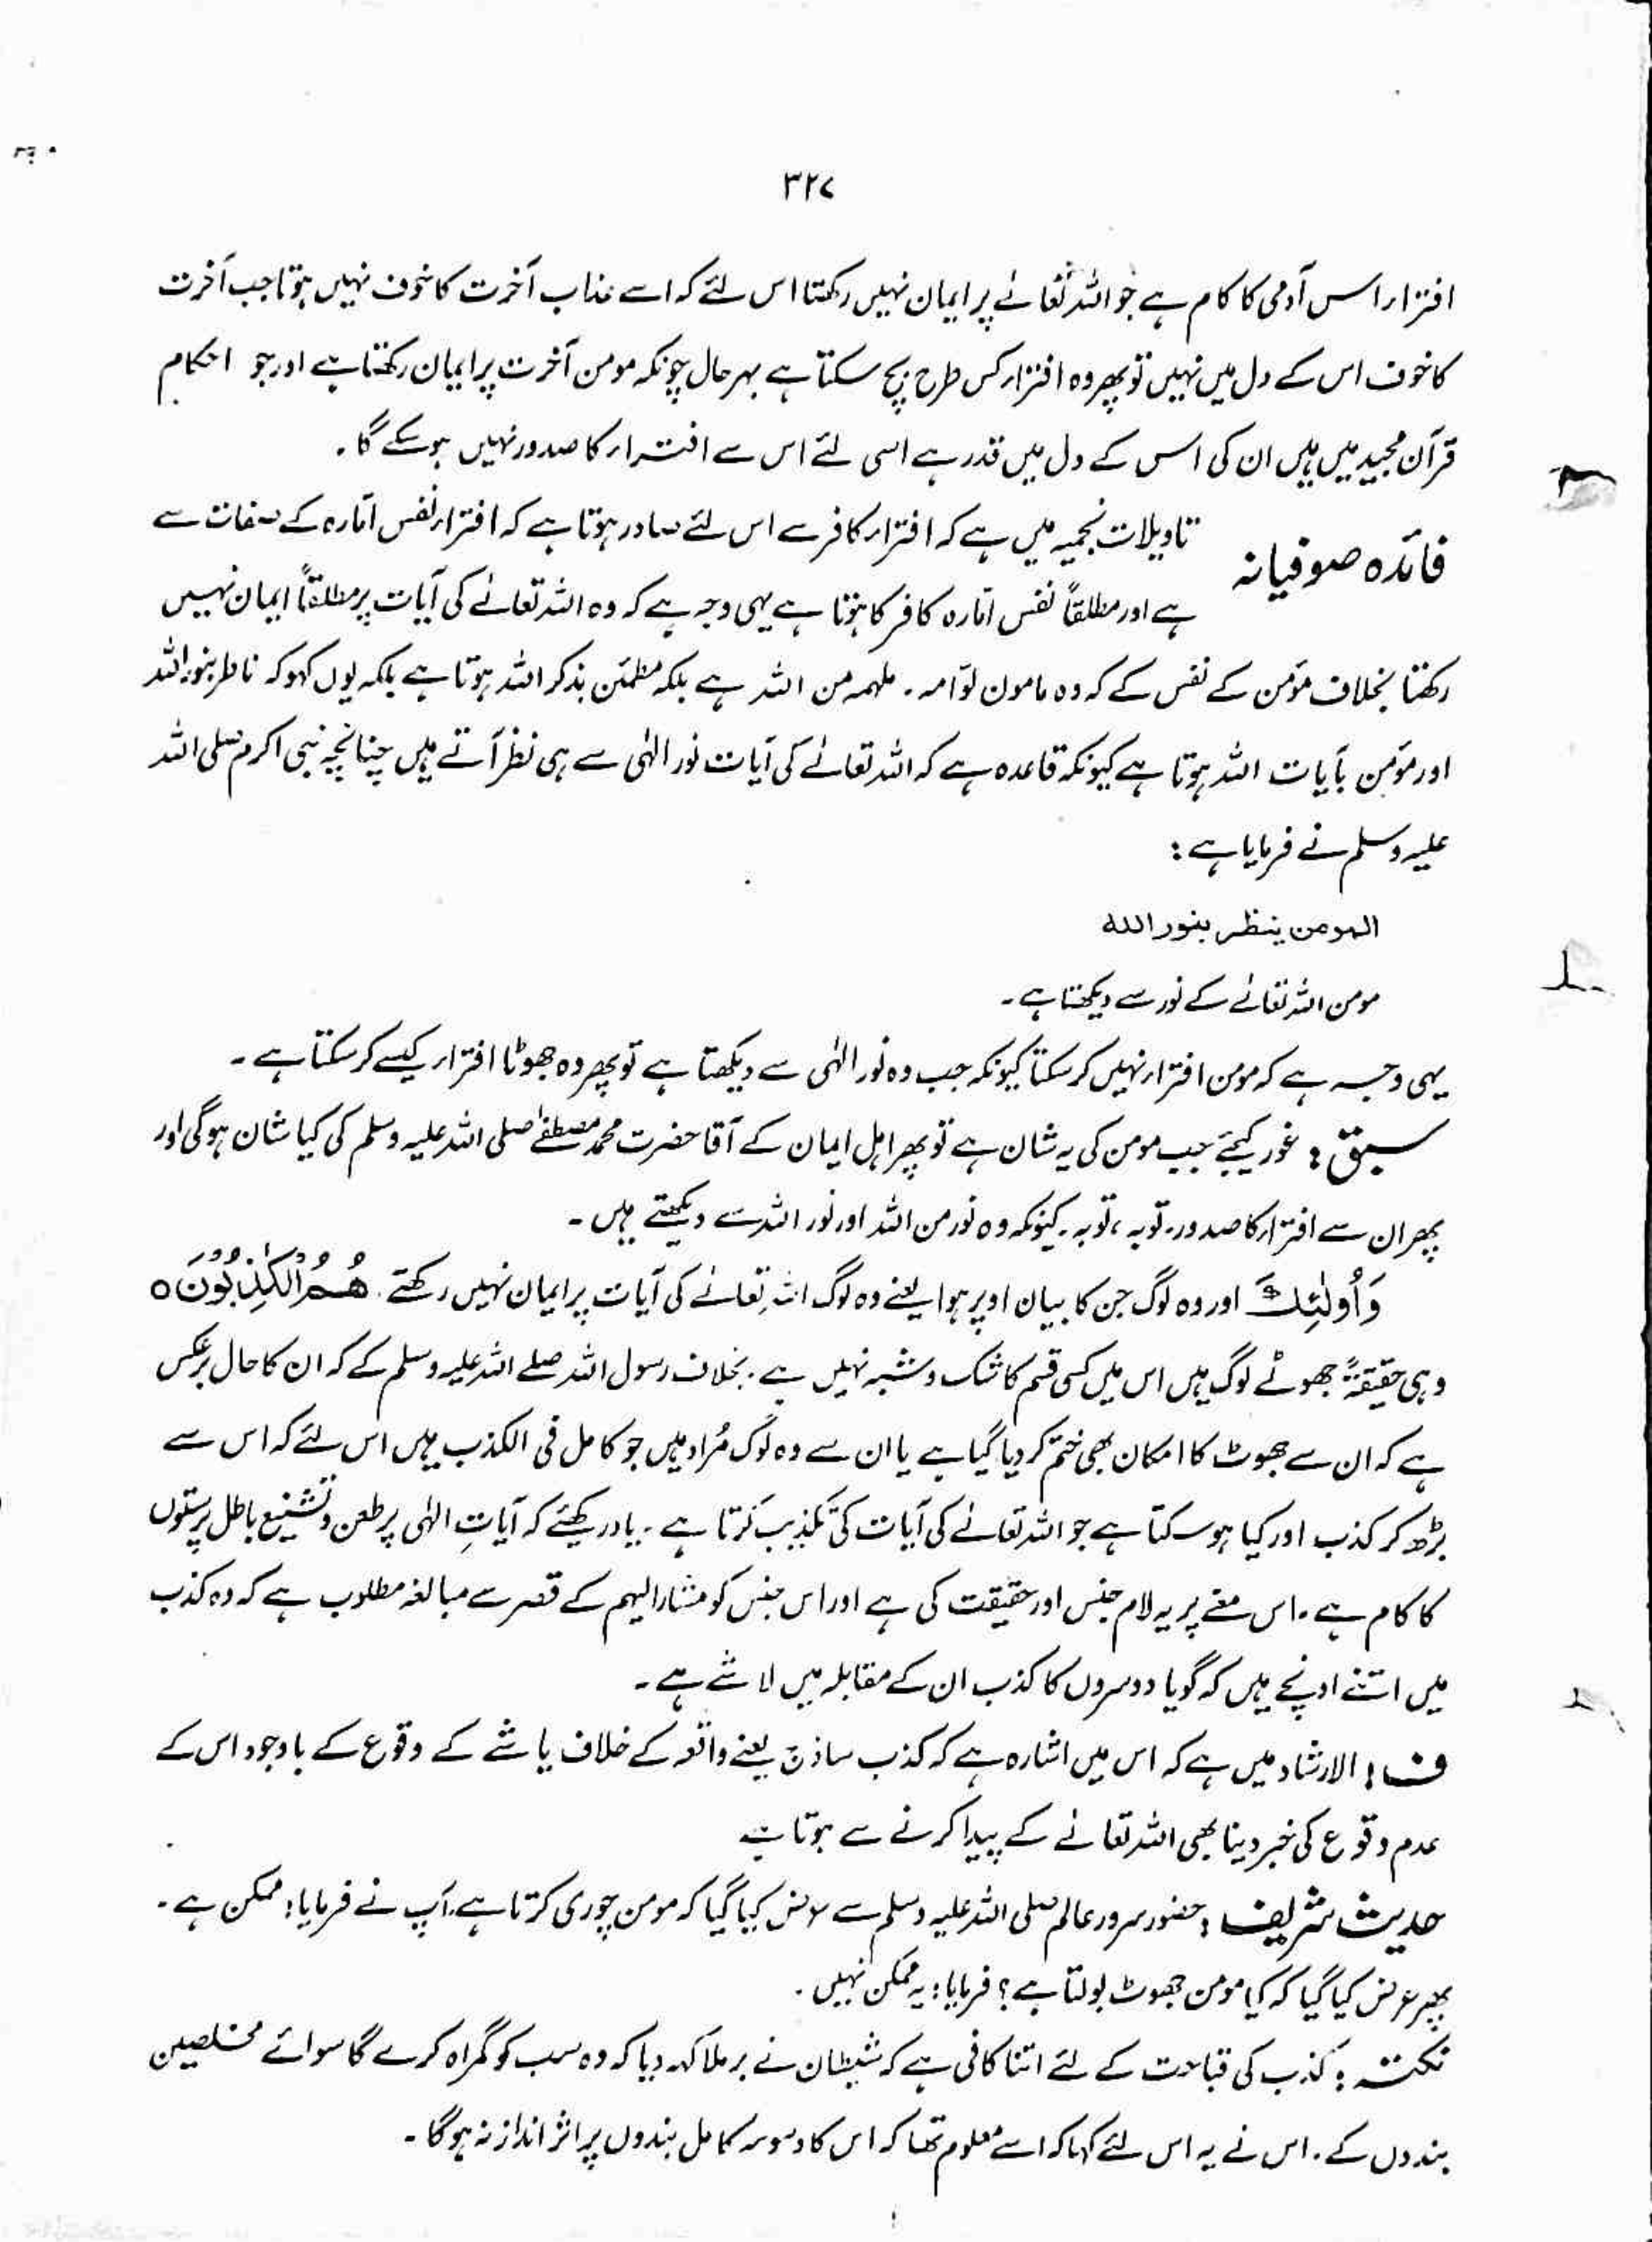 ۳۲۷
افتراء اس آدمی کا کام ہے جو اللہ تعالےٰ پر ایمان نہیں رکھتا اس لئے کہ اسے عذاب آخرت کا خوف نہیں ہوتا جب آخرت
کا خوف اس کے دل میں نہیں تو پھر وہ افتراء کس طرح بچ سکتا ہے بہر حال چونکہ مومن آخرت پر ایمان رکھتا ہے اور جو احکام
قرآن مجید میں ہیں ان کی اس کے دل میں قدر ہے اسی لئے اس سے افتراء کا صدور نہیں ہو سکے گا ۔
فائدہ صوفیانہ تاویلات نجمیہ میں ہے کہ افتراء کافر سے اس لئے صادر ہوتا ہے کہ افتراء نفس امارہ کے صفات سے
ہے اور مطلقاً نفس امّارہ کافر کا ہوتا ہے یہی وجہ ہے کہ وہ اللہ تعالےٰ کی آیات پر مطلقاً ایمان نہیں
رکھتا بخلاف مؤمن کے نفس کے کہ وہ مامون لوّامہ ۔ ملہمہ من اللہ ہے بلکہ مطمئن بذکر اللہ ہوتا ہے بلکہ یوں کہو کہ ناظر بنور اللہ
اور مؤمن بآیات اللہ ہوتا ہے کیونکہ قاعدہ ہے کہ اللہ تعالےٰ کی آیات نور الہٰی سے ہی نظر آتے ہیں چنانچہ نبی اکرم صلی اللہ
علیہ وسلم نے فرمایا ہے :
المومن ینظر بنور اللہ
مومن اللہ تعالےٰ کے نور سے دیکھتا ہے ۔
یہی وجہ ہے کہ مومن افتراء نہیں کر سکتا کیونکہ جب وہ نور الہٰی سے دیکھتا ہے تو پھر وہ جھوٹا افتراء کیسے کر سکتا ہے ۔
سبق : غور کیجئے جب مومن کی یہ شان ہے تو پھر اہل ایمان کے آقا حضرت محمد مصطفےٰ صلی اللہ علیہ وسلم کی کیا شان ہو گی اور
پھر ان سے افتراء کا صدور ۔ توبہ ، توبہ ۔ کیونکہ وہ نور من اللہ اور نور اللہ سے دیکھتے ہیں ۔
وَ اُولٰٓئِكَ اور وہ لوگ جن کا بیان اوپر ہوا یعنے وہ لوگ اللہ تعالےٰ کی آیات پر ایمان نہیں رکھتے ۔ هُمُ الْكٰذِبُوْنَ ○
وہی حقیقۃً جھوٹے لوگ ہیں اس میں کسی قسم کا شک و شبہ نہیں ہے ۔ بخلاف رسول اللہ صلے اللہ علیہ وسلم کے کہ ان کا حال برعکس
ہے کہ ان سے جھوٹ کا امکان بھی ختم کر دیا گیا ہے یا ان سے وہ لوگ مُراد ہیں جو کامل فی الکذب ہیں اس لئے کہ اس سے
بڑھ کر کذب اور کیا ہو سکتا ہے جو اللہ تعالےٰ کی آیات کی تکذیب کرتا ہے ۔ یاد رکھئے کہ آیاتِ الہٰی پر طعن و تشنیع باطل پرستوں
کا کام ہے ۔ اس معنے پر یہ لام جنس اور حقیقت کی ہے اور اس جنس کو مشار الیہم کے قصر سے مبالغہ مطلوب ہے کہ وہ کذب
میں اتنے اونچے ہیں کہ گویا دوسروں کا کذب ان کے مقابلہ میں لا شے ہے ۔
ف : الارشاد میں ہے کہ اس میں اشارہ ہے کہ کذب ساذج یعنے واقعہ کے خلاف یا شے کے وقوع کے باوجود اس کے
عدم وقوع کی خبر دینا بھی اللہ تعالےٰ کے پیدا کرنے سے ہوتا ہے
حدیث شریف : حضور سرور عالم صلی اللہ علیہ وسلم سے عرض کیا گیا کہ مومن چوری کرتا ہے آپ نے فرمایا : ممکن ہے ۔
پھر عرض کیا گیا کہ کیا مومن جھوٹ بولتا ہے ؟ فرمایا : یہ ممکن نہیں ۔
نکتہ : کذب کی قباحت کے لئے اتنا کافی ہے کہ شیطان نے برملا کہہ دیا کہ وہ سب کو گمراہ کرے گا سوائے مخلصین
بندوں کے ۔ اس نے یہ اس لئے کہا کہ اسے معلوم تھا کہ اس کا وسوسہ کامل بندوں پر اثر انداز نہ ہو گا ۔